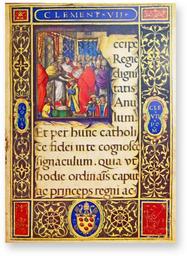 CLEMENT·VII·
ccipe
Regie
digni
tatis
Anu
lum
Et per hunc catholi
ce fidei in te cognosce
signaculum. quia vt
hodie ordinaris caput
ac princeps regni ac
CLE
VII